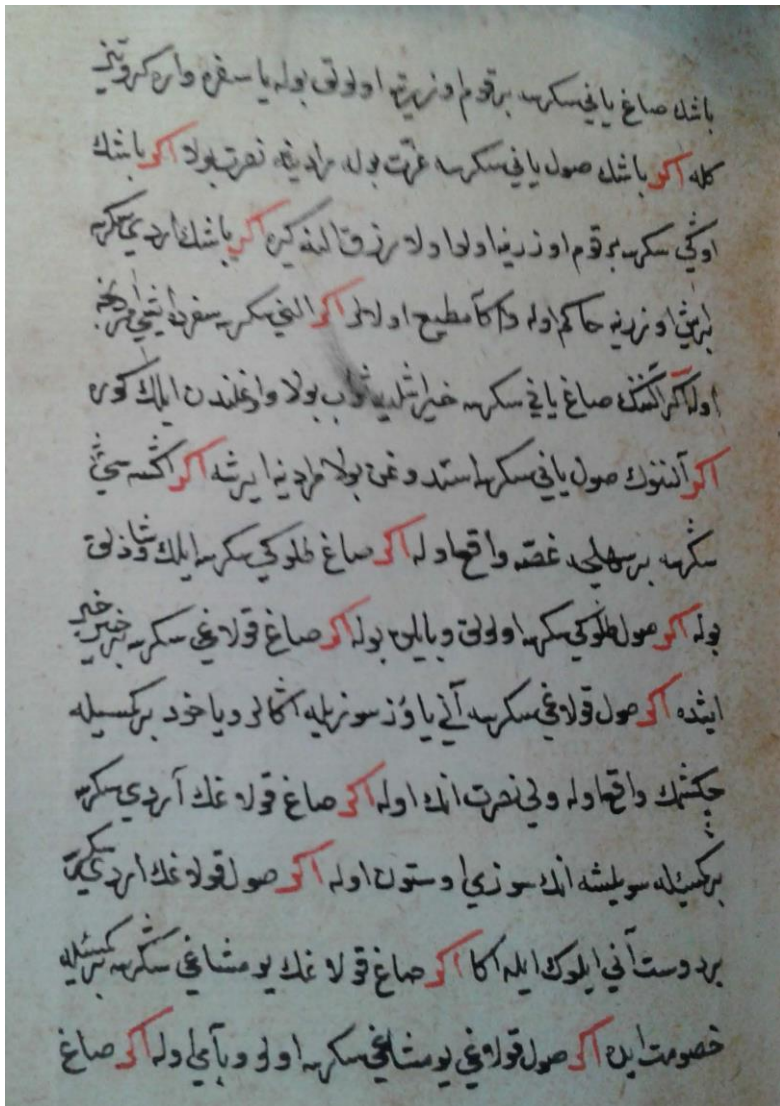 باشك صاغ ياني سكرسه برقوم اوزرينه اولولق بوله يا سفره واره كروتيز
كله اكر باشك صول ياني سكرسه عزت بوله مرادينه نصرت بولا اكر باشك
اوكي سكرسه برقوم اوزرينه اولو اولا رزق الينه كيره اكر باشك اردي سكرسه
اوزرينه حاكم اوله واكا مطيع اولالر اكر الني سكرسه سفره
اوله اكر صاغ ياني سكرسه خير بولا ايلك كوره
اكر آلننوك صول ياني سكرسه استدوغن بولا مرادينه ايرشه اكر اكسه سي
سكرسه برسهلجه غصه واقع اوله اكر صاغ طلوكي سكرسه ايلك وشاذلق
بوله اكر صول طلوكي سكرسه اولولق وبايلق بوله اكر صاغ قولاغي سكرسه خير خبر
ايشده اكر صول قولاغي سكرسه آني ياوز سوزيله اكالر ويا خود بركمسيله
چكشمك واقع اوله ولي نصرت انك اوله اكر صاغ قولاغك آردي سكرسه
بركمسيله سويلشه انك سوزي اوستون اوله اكر صول قولاغك اردي سكرسه
بر دوست آني ايلوك ايله اكا اكر صاغ قولاغك يومشاغي سكرسه بركمسيله
خصومت ايده اكر صول قولاغي يومشاغي سكرسه اولو وباي اوله اكر صاغ